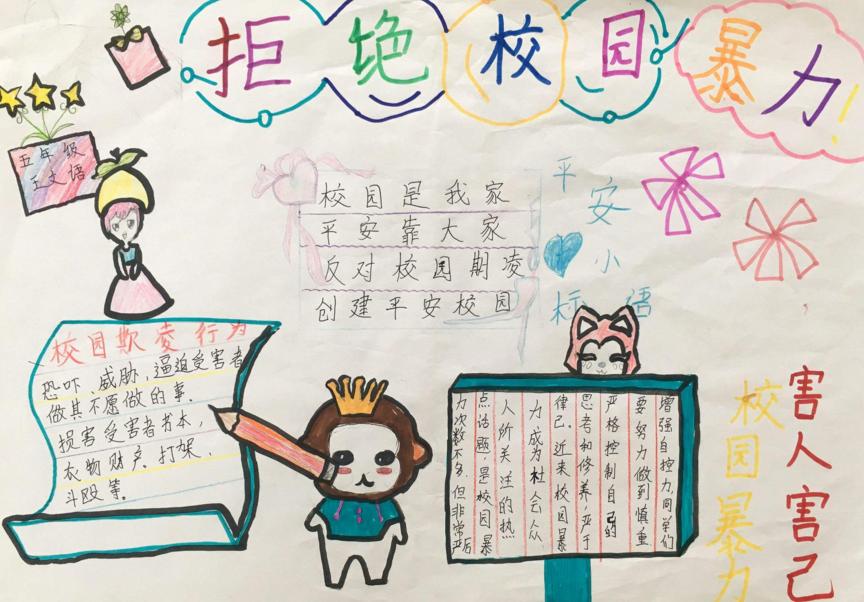 拒绝校园暴力!
五年级
王文语
校园是我家
平安靠大家
反对校园期凌
创建平安校园
平安小标语
校园欺凌行为
恐吓、威胁,逼迫受害者
做其不愿做的事.
损害受害者书本,
衣物财产、打架、
斗殴等。
增强自控力,同学们
要努力做到慎重
严格控制自己的
思考和修养,严于
律己.近来校园暴
力成为社会众
人所关注的热
点话题,是校园暴
力次数不多,但非常严后
校园暴力
害人害己